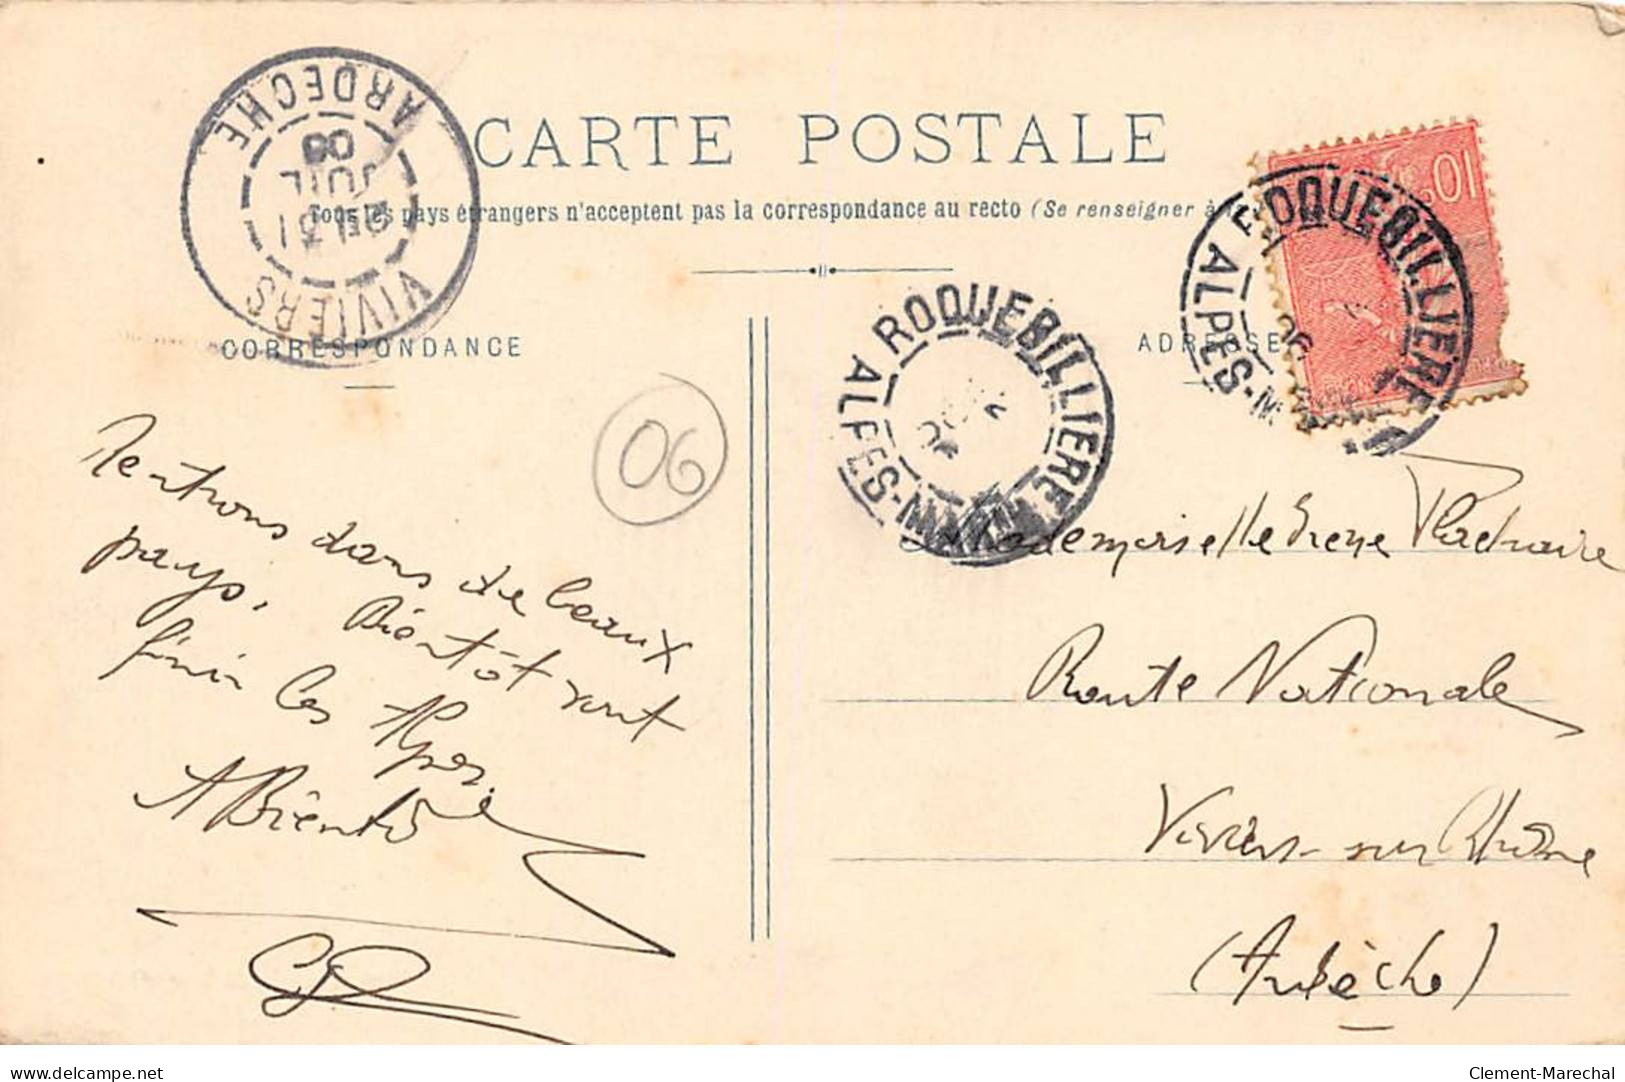 CARTE POSTALE
Tous les pays étrangers n'acceptent pas la correspondance au recto (Se renseigner à la
VIVIERS
ARDECHE
JUIL
06
CORRESPONDANCE
ADRESSE
ROQUEBILLIERE
ALPES-M
10c
ROQUEBILLIERE
ALPES-MAR
06
Rentrons dans de beaux
pays. Bientôt vont
finir les Alpes.
A Bientôt
Mademoiselle Irene
Route Nationale
Viviers-sur Rhône
(Ardèche)
delcampe.net
Clement-Marechal